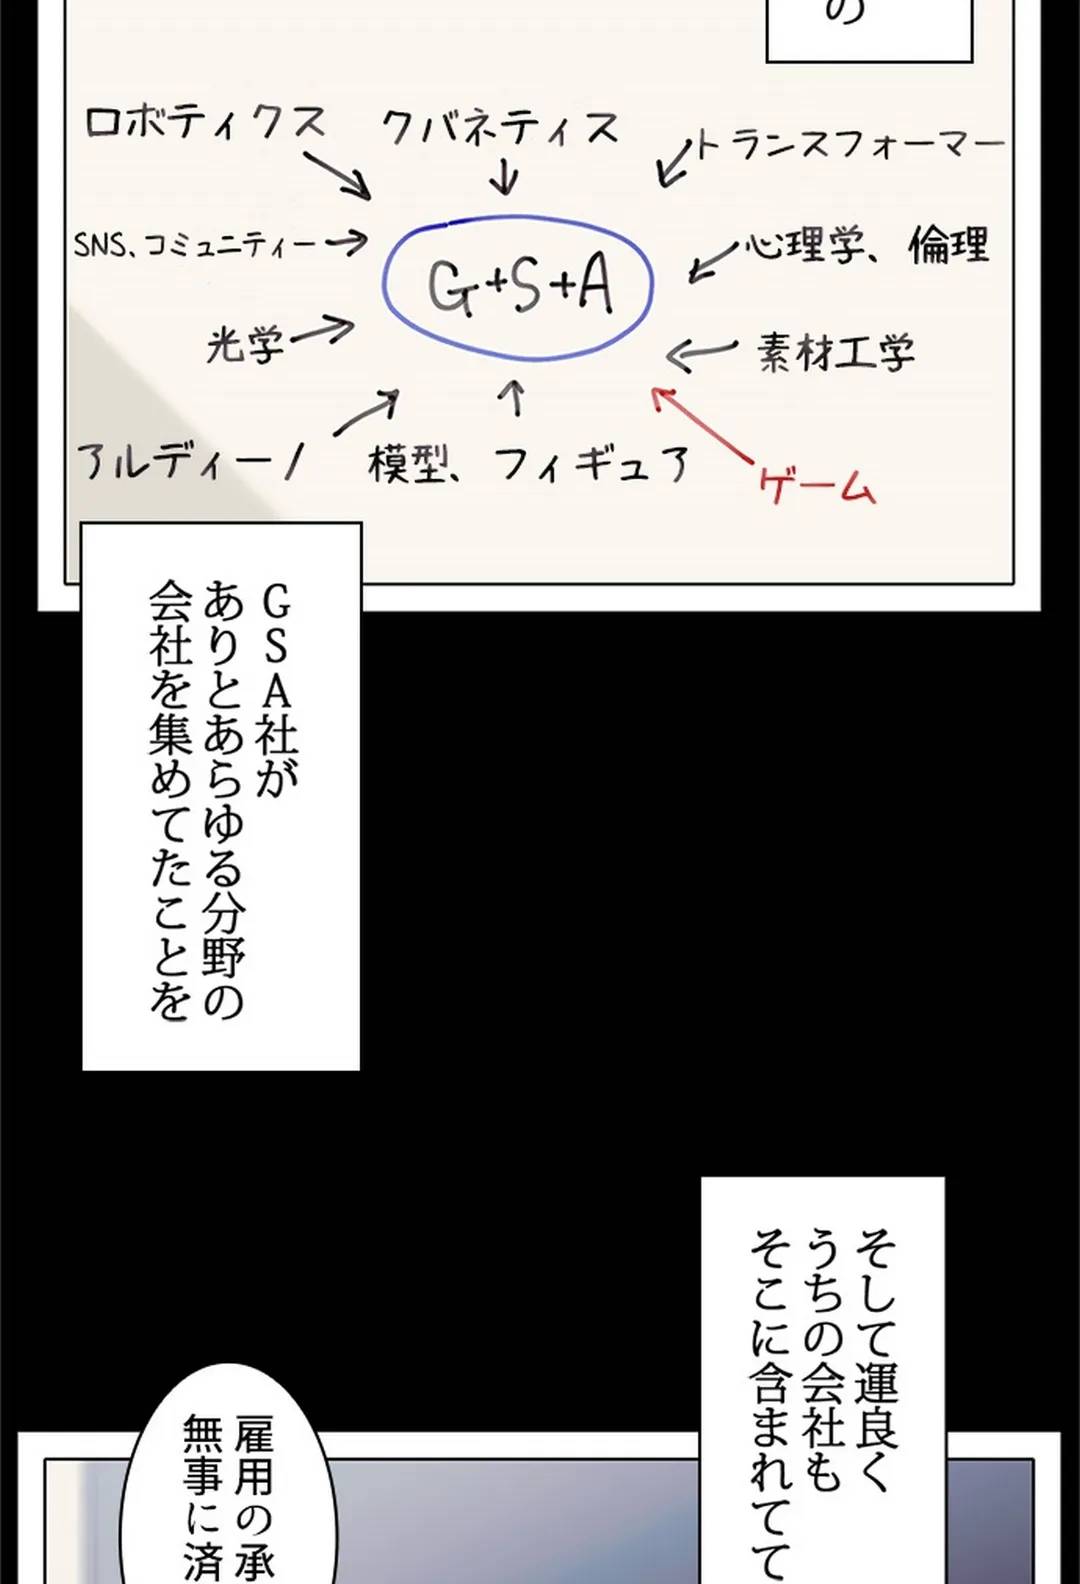 の
ロボティクス
クバネティス
トランスフォーマー
SNS、コミュニティー
G+S+A
心理学、倫理
光学
素材工学
アルディーノ
模型、フィギュア
ゲーム
GSA社が
ありとあらゆる分野の
会社を集めてたことを
そして運良く
うちの会社も
そこに含まれてて
雇用の承
無事に済